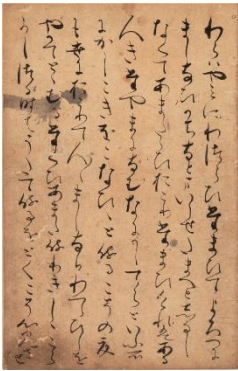 わらはやみにわつらひたまひてよろつに
ましなひかちなとまいらせたまへとしるし
なくてあまたたひおこりたまひけれはある
人きたやまになむなにかしてらといふ所
にかしこきおこなひ人侍るこその夏
も世におこりて人々ましなひわつらひしを
やかてととむるたくひあまた侍りきししこら
かしつる時はうたて侍をとくこそ心みさせ